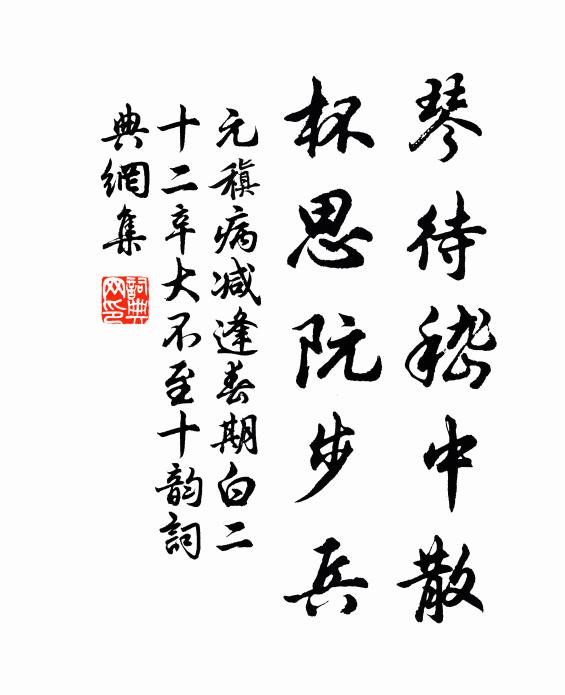 琴待嵇中散
杯思阮步兵
元稹病减逢春期白二
十二辛大不至十韵詞
典網集
詞典
网印